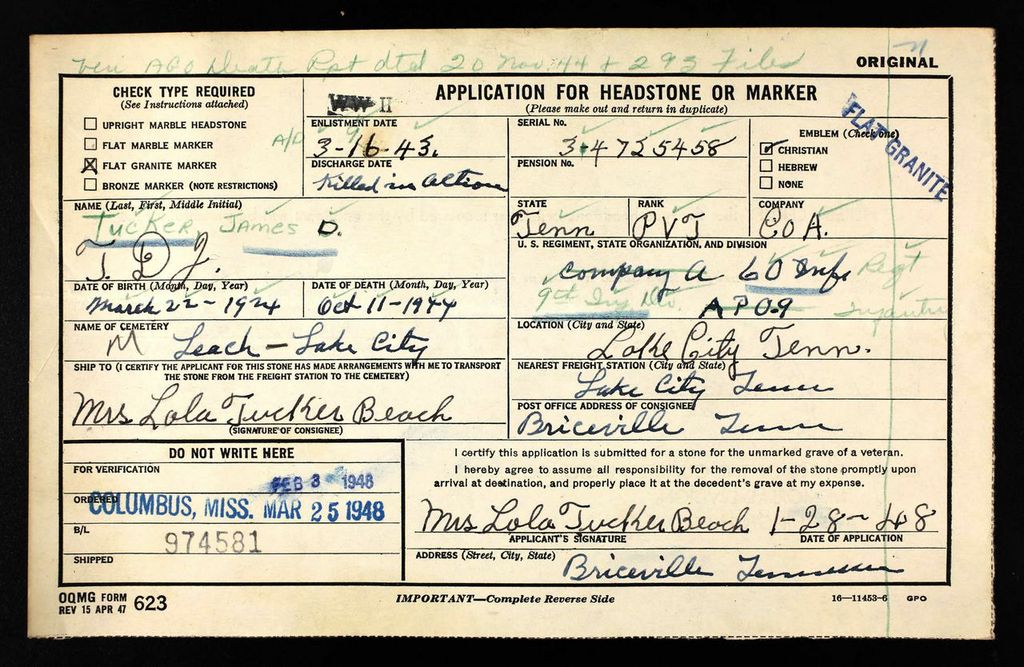 Veri AGO Death Rpt dtd 20 Nov 44 + 293 Files
ORIGINAL
CHECK TYPE REQUIRED
(See Instructions attached)
UPRIGHT MARBLE HEADSTONE
FLAT MARBLE MARKER
FLAT GRANITE MARKER
BRONZE MARKER (NOTE RESTRICTIONS)
WW II
APPLICATION FOR HEADSTONE OR MARKER
(Please make out and return in duplicate)
ENLISTMENT DATE
A/D 3-16-43.
DISCHARGE DATE
Killed in Action
SERIAL No.
34725458
PENSION No.
EMBLEM (Check one)
CHRISTIAN
HEBREW
NONE
FLAT GRANITE
NAME (Last, First, Middle Initial)
Tucker, James D.
T. D J.
STATE
Tenn
RANK
PVT
COMPANY
Co A.
U. S. REGIMENT, STATE ORGANIZATION, AND DIVISION
Company A 60 Inf. Regt
9th Inf Div APO 9 Infantry
DATE OF BIRTH (Month, Day, Year)
March 22-1924
DATE OF DEATH (Month, Day, Year)
Oct 11-1944
NAME OF CEMETERY
M Leach - Lake City
LOCATION (City and State)
Lake City Tenn.
SHIP TO (I CERTIFY THE APPLICANT FOR THIS STONE HAS MADE ARRANGEMENTS WITH ME TO TRANSPORT
THE STONE FROM THE FREIGHT STATION TO THE CEMETERY)
Mrs Lola Tucker Beach
(SIGNATURE OF CONSIGNEE)
NEAREST FREIGHT STATION (City and State)
Lake City Tenn
POST OFFICE ADDRESS OF CONSIGNEE
Briceville Tenn
DO NOT WRITE HERE
FOR VERIFICATION
FEB 3 1948
ORDERED
COLUMBUS, MISS. MAR 25 1948
B/L
974581
SHIPPED
I certify this application is submitted for a stone for the unmarked grave of a veteran.
I hereby agree to assume all responsibility for the removal of the stone promptly upon
arrival at destination, and properly place it at the decedent's grave at my expense.
Mrs Lola Tucker Beach 1-28-48
APPLICANT'S SIGNATURE DATE OF APPLICATION
ADDRESS (Street, City, State)
Briceville Tennessee
OQMG FORM
REV 15 APR 47 623
IMPORTANT—Complete Reverse Side
16—11453-6 GPO